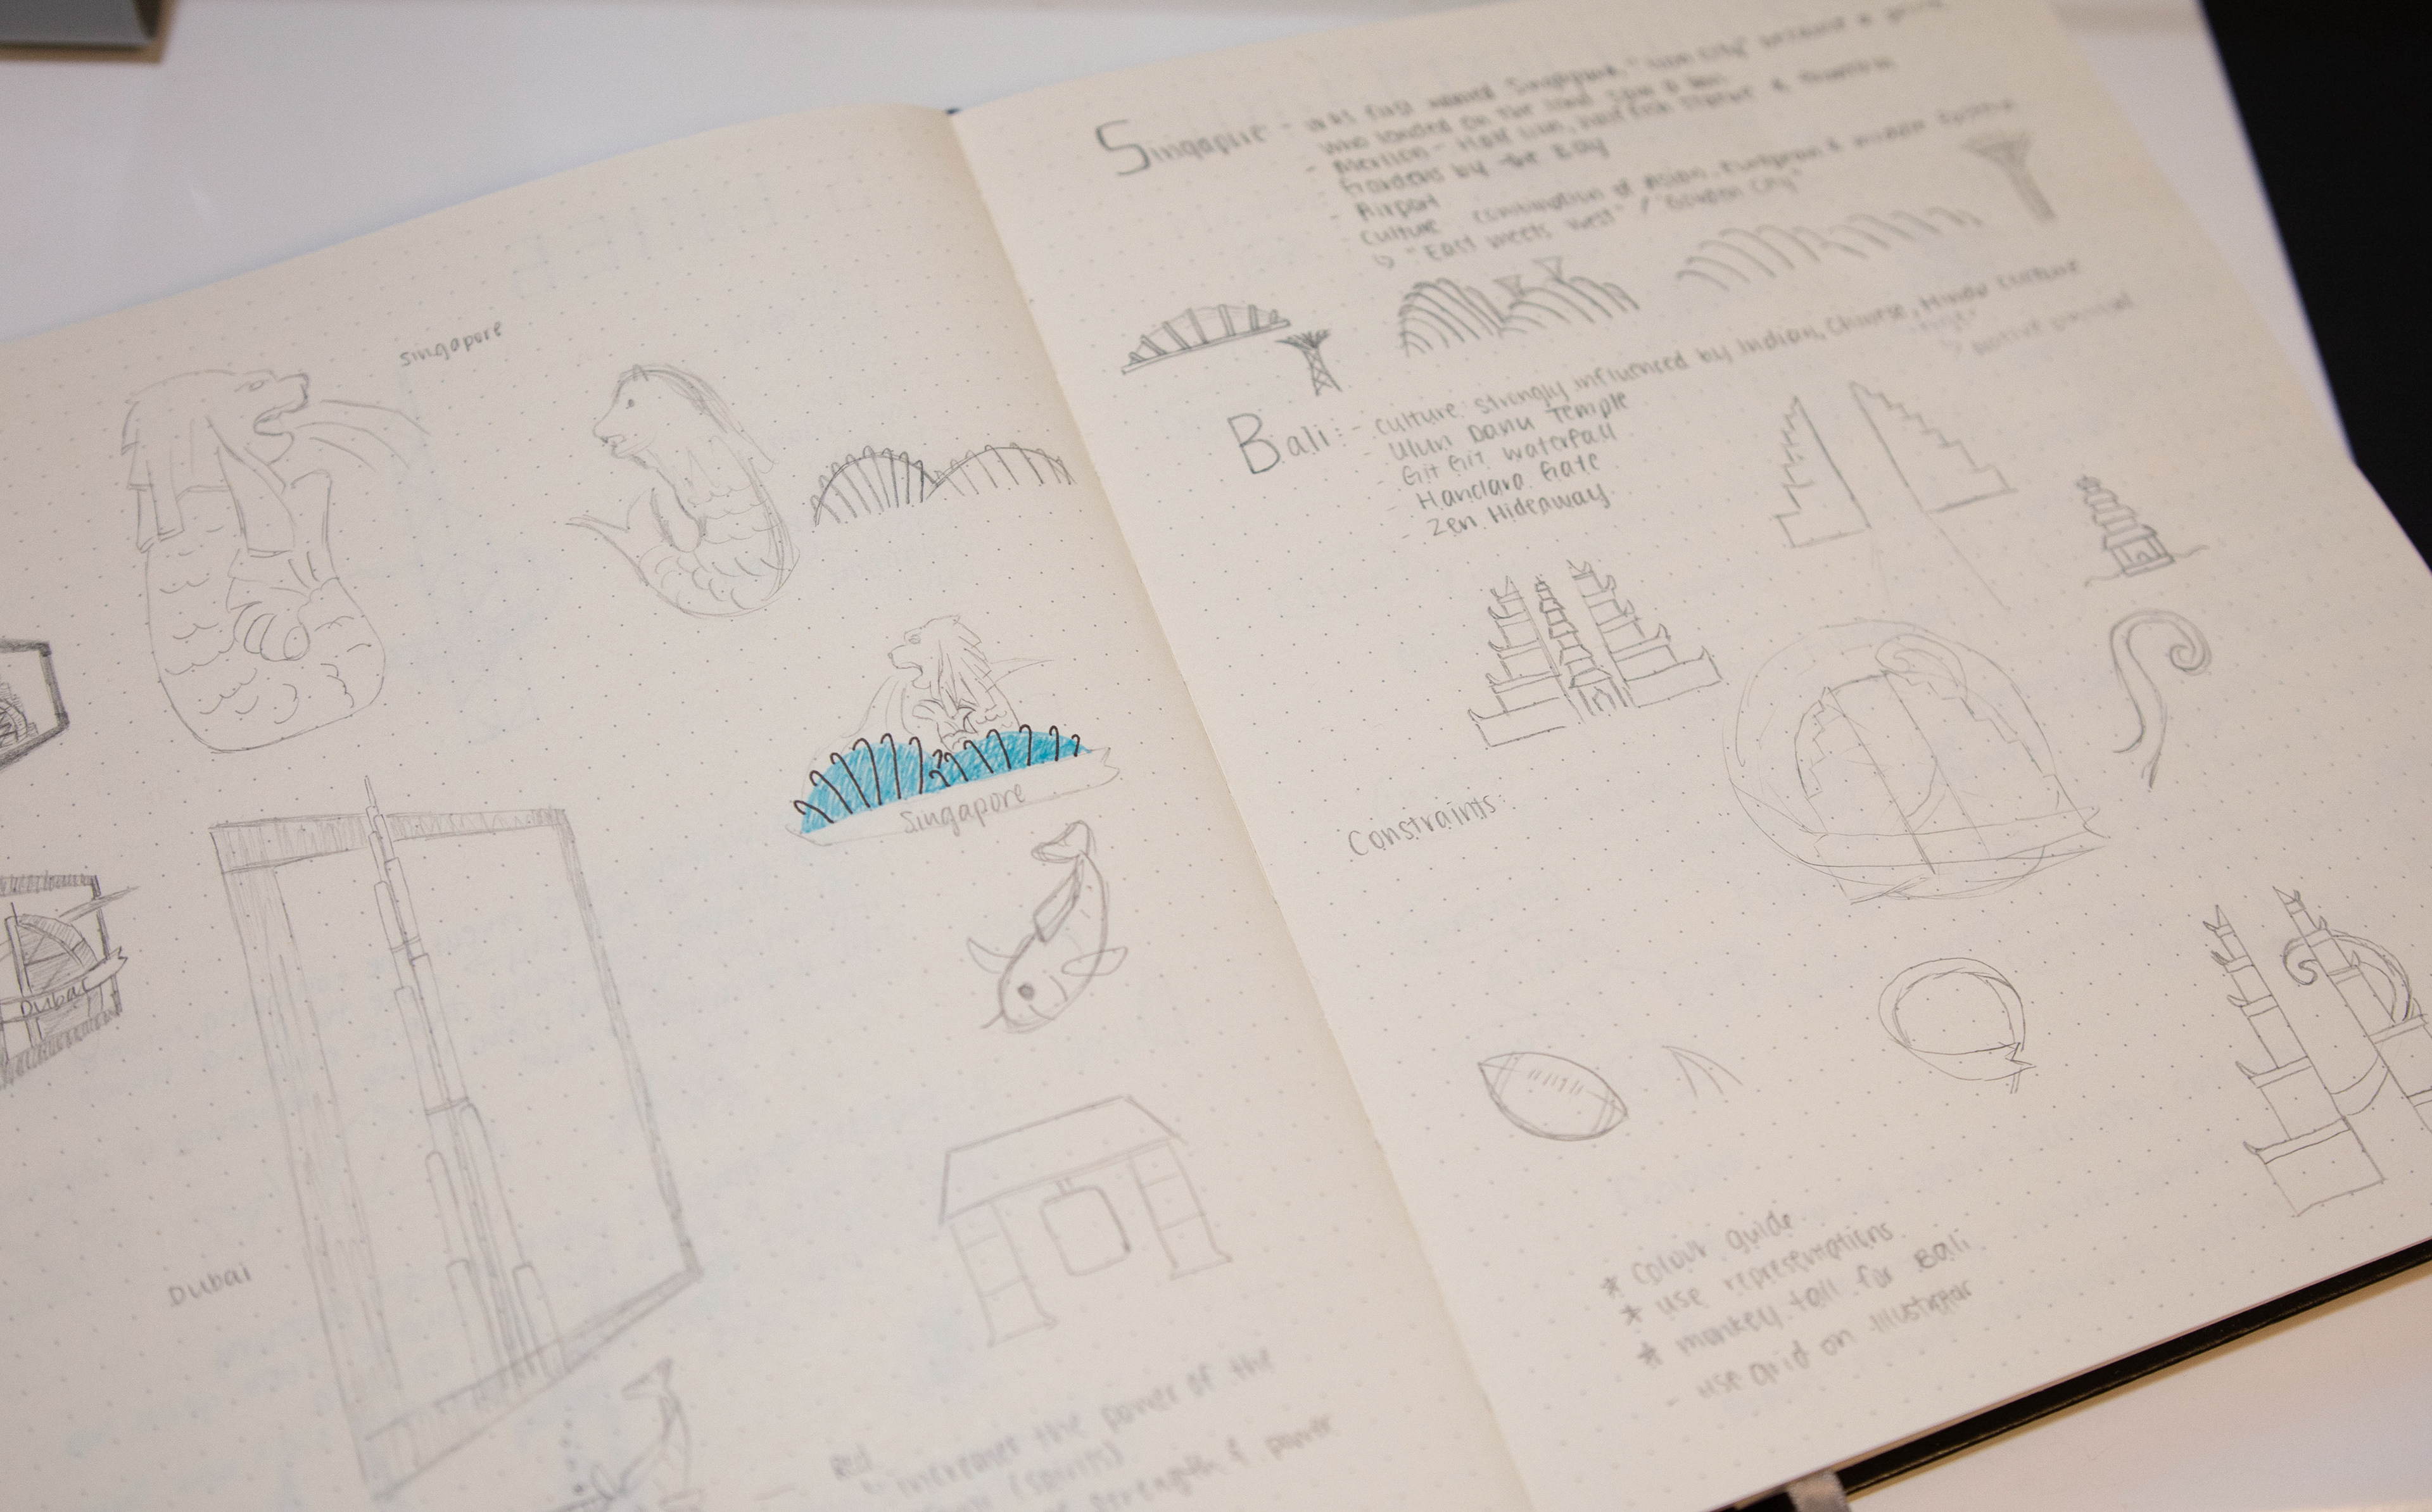 singapore
Singapore
Dubai
Dubai
Red
increases the power of the
(spirits)
strength & power
Singapore - was first named Singapura, "Lion City" because a
who landed on the land saw a lion
- Merlion - Half lion, half fish statue &
- Gardens by the Bay
- Airport
Culture combination of Asian, European &
↳ "East meets West" / "Garden City"
Bali: - culture: strongly influenced by Indian, Chinese, Hindu culture
- Ulun Danu Temple
- Git Git Waterfall
- Handara Gate
- Zen Hideaway
Constraints:
* colour guide
* use representations
* monkey tail for Bali
- use grid on Illustrator